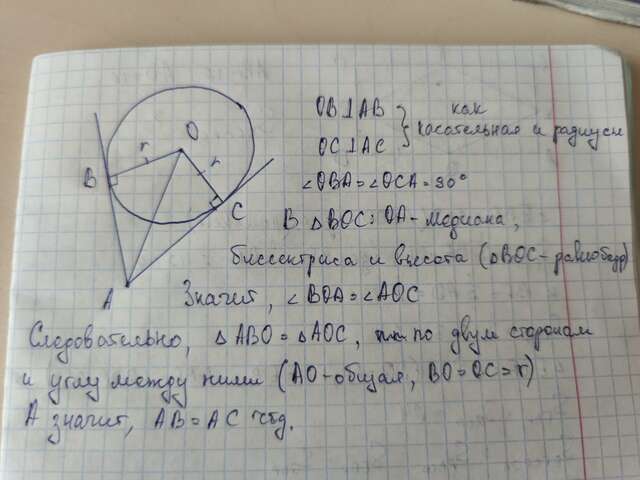 O
r
r
B
C
A
OB⊥AB
OC⊥AC
как
касательная и радиусы
∠OBA=∠OCA=90°
В △BOC: OA-медиана,
биссектриса и высота (△BOC-равнобедр)
Значит, ∠BOA=∠AOC
Следовательно, △ABO=△AOC, по двум сторонам
и углу между ними (AO-общая, BO=OC=r)
А значит, AB=AC чтд.